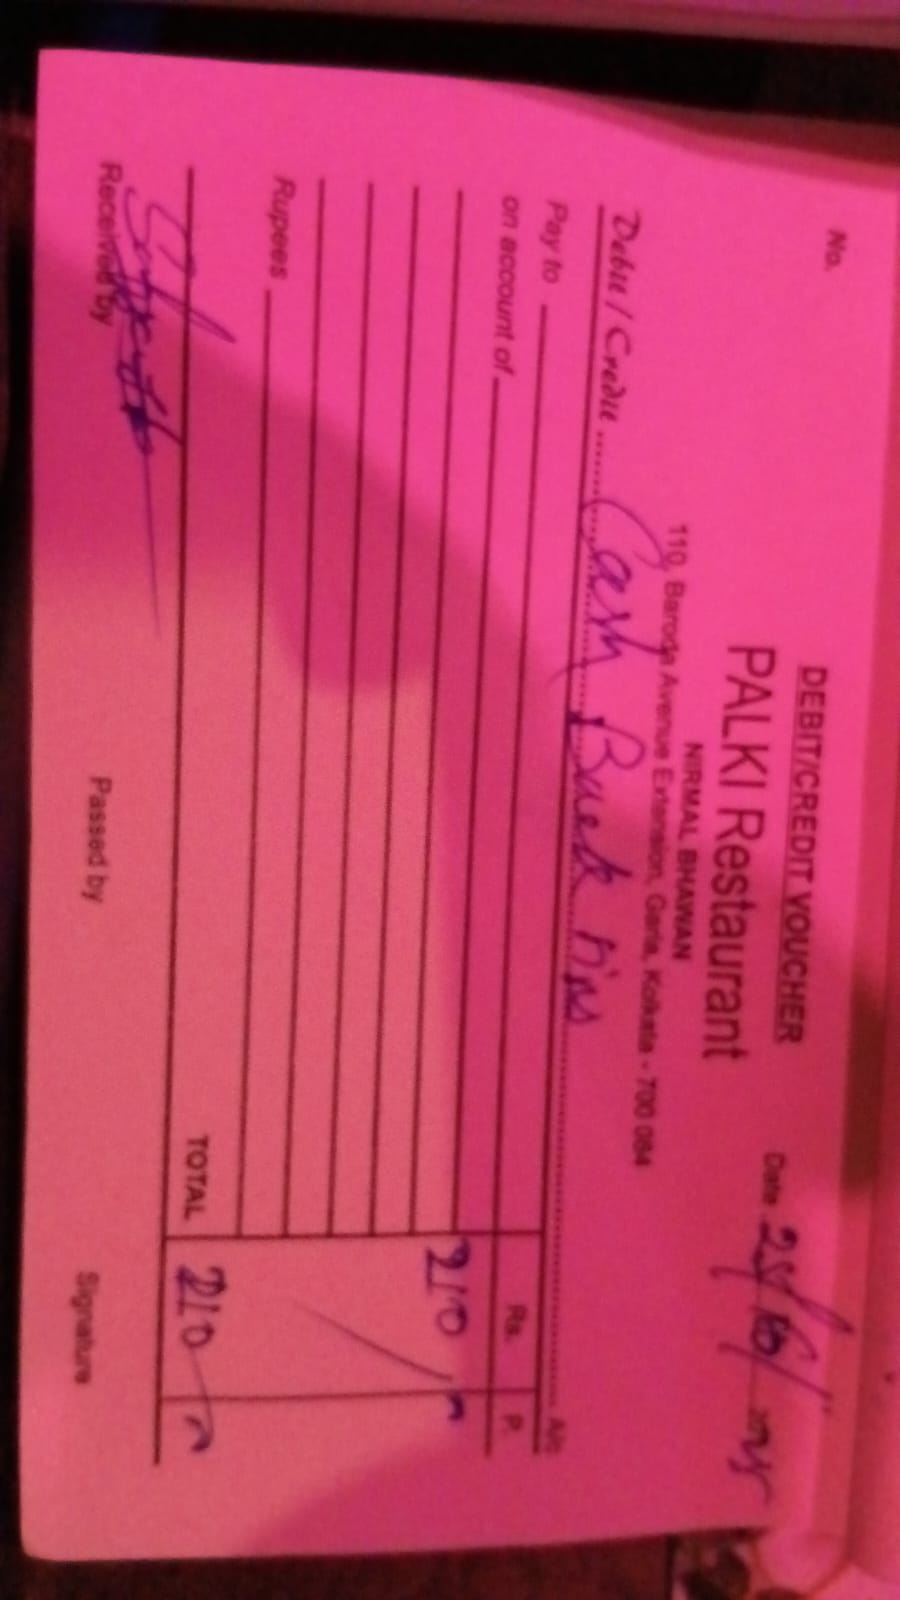 No.
DEBIT/CREDIT VOUCHER
PALKI Restaurant
NIRMAL BHAWAN
110, Baroda Avenue Extension, Garia, Kolkata - 700 084
Date
Debit / Credit Cash Back A/c
Pay to Rs. P.
on account of
210
Rupees
TOTAL 210
Received by Passed by Signature